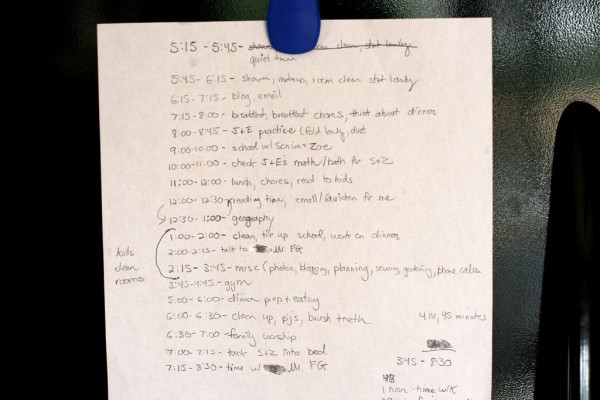 5:15 - 5:45 - clean, strt laundry
quiet time
5:45 - 6:15 - shower, makeup, room clean strt laundry
6:15 - 7:15 - blog, email
7:15 - 8:00 - breakfast, breakfast chores, think about dinner
8:00 - 8:45 - J+E practice (fold laundry, dust
9:00 - 10:00 - school w/ Zoe
10:00 - 11:00 - check J+E's math/bath for S+Z
11:00 - 12:00 - lunch, chores, read to kids
12:00 - 12:30 - reading time, email/ for me
12:30 - 1:00 - geography
1:00 - 2:00 - clean, up school, work on dinner
2:00 - 2:15 - talk to Mr. FG
kids clean rooms
2:15 - 3:45 - misc (photos, blogging, planning, sewing, gardening, phone calls
3:45 - 4:45 - gym
5:00 - 6:00 - dinner prep + eating
6:00 - 6:30 - clean up, pjs, brush teeth
4 hr, 45 minutes
6:30 - 7:00 - family worship
7:00 - 7:15 - tuck S+Z into bed
3:45 - 8:30
7:15 - 8:30 - time w/ Mr. FG
1 hour - time w/K